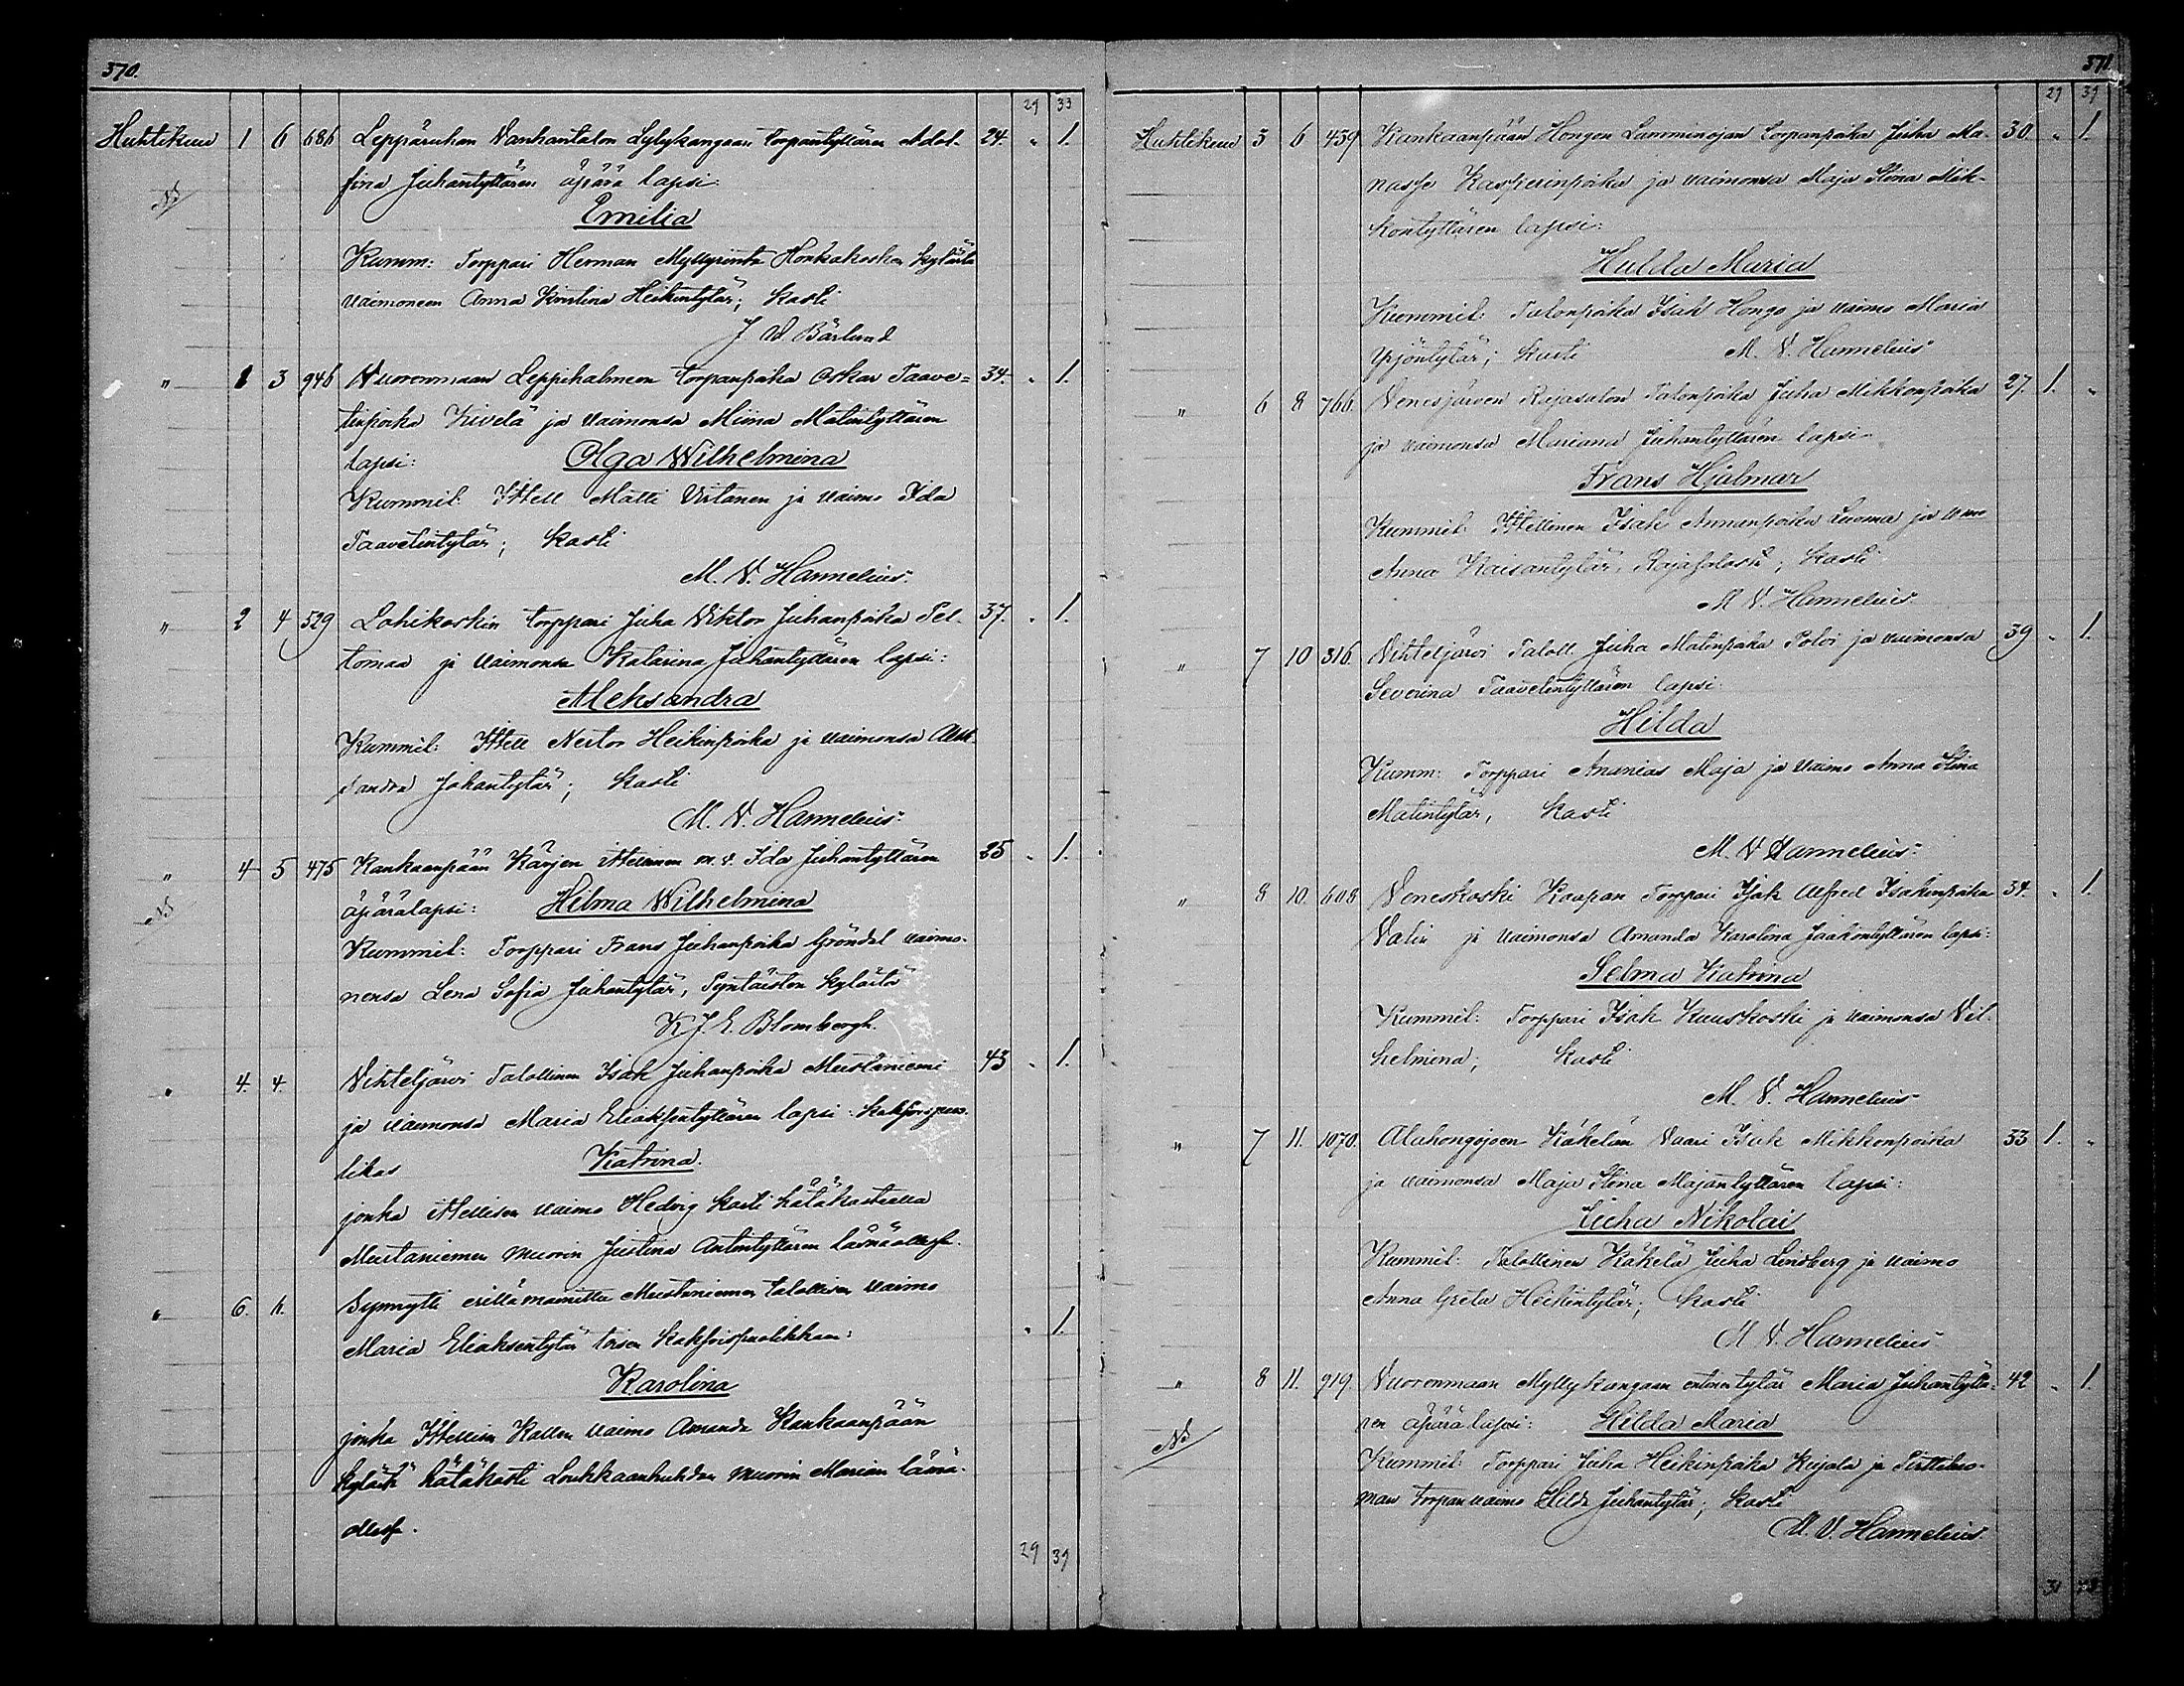 370.
29 33
Huhtikuu 1 6 686 Leppäruhan Vanhantalon Lylykangaan torpantyttären Adol- 24. „ 1.
fina Juhantyttären äpärä lapsi:
NB
Emilia
Kumm: Torppari Herman Myllyrinta Honkakosken kylästä
vaimoneen Anna Kristina Heikintytär; Kasti
J W. Bärlund
„ 1 3 946 Vuorenmaan Leppihalmeen torpanpoika Oskar Taave= 34. „ 1.
tinpoika Kivelä ja vaimonsa Miina Matintyttären
lapsi: Olga Wilhelmina
Kummit: Itsell Matti Virtanen ja vaimo Ida
Taavetintytär; Kasti
M. V. Hannelius.
„ 2 4 529 Lohikoskin torppari Juha Viktor Juhanpoika Pel- 37. „ 1.
tomaa ja vaimonsa Katarina Juhantyttären lapsi:
Aleksandra
Kummit: Itsell Nestor Heikinpoika ja vaimonsa Alek-
sandra Johantytär; Kasti
M. V. Hannelius.
„ 4 5 475 Kankaanpään Kärjen itsellinen m. v. Ida Juhantyttären 25 „ 1.
NB
äpärälapsi: Hilma Wilhelmina
Kummit: Torppari Frans Juhanpoika Gröndal vaimo-
nensa Lena Sofia Juhantytär, kylästä
K J E. Blombergh.
„ 4. 4. Vihteljärvi Talollinen Isak Juhanpoika Mustaniemi 43 „ 1.
ja vaimonsa Maria Eliaksentyttären lapsi: kaksoispuo-
likas Katrina.
jonka itsellisen vaimo Hedvig kasti hätäkasteella
Mustaniemen muorin Justina Antintyttären läsnäollessa.
„ 6. 4. Synnytti mainittu Mustaniemen talollisen vaimo
Maria Eliaksentytär toisen kaksoispuolikkaan: „ 1.
Karolina
jonka Itsellisen Kallen vaimo Amanda Kankaanpään
kylästä hätäkasti muorin Marian läsnä-
ollessa.
29 39
371.
29 39
Huhtikuu 3 6 439 Kankaanpään Hongon Lamminojan torpanpoika Juha Ma- 30. „ 1.
nasse Kasperinpoika ja vaimonsa Maja Stina Mik-
kontyttären lapsi:
Hulda Maria
Kummit: Talonpoika Isak Hongo ja vaimo Maria
Yrjöntytär; Kasti M. V. Hannelius
„ 6 8 766. Venesjärven Rajasalon Talonpoika Juha Mikkonpoika 27. 1. „
ja vaimonsa Mariana Juhantyttären lapsi
Frans Hjalmar
Kummit: Itsellinen Isak Annanpoika Luoma ja vmo
Anna Kaisantytär, Rajasalosta; Kasti
M V. Hannelius.
„ 7 10 316. Vihteljärvi Taloll Juha Matinpoika Polvi ja vaimonsa 39 „ 1.
Severina Taavetintyttären lapsi
Hilda
Kumm: Torppari Ananias Maja ja vaimo Anna Stina
Matintytär, Kasti
M. V Hannelius.
„ 8 10. 608 Veneskoski Kaapan Torppari Isak Alfred Isakinpoika 34. „ 1.
Valin ja vaimonsa Amanda Karolina Jaakontyttären lapsi:
Selma Katrina
Kummit: Torppari Isak Kuuskoski ja vaimonsa Vil-
helmina; Kasti
M. V. Hannelius
„ 7 11. 1070. Alahongojoen Käkelän Vaari Isak Mikkonpoika 33 1. „
ja vaimonsa Maja Stina Majantyttären lapsi:
Juha Nikolai
Kummit: Talollinen Käkelä Juha Lindberg ja vaimo
Anna Greta Heikintytär; Kasti
M V. Hannelius
„ 8 11. 919. Vuorenmaan Myllykangaan tytär Maria Juhantyttä- 42 „ 1.
ren äpärälapsi: Hilda Maria
NB
Kummit: Torppari Juha Heikinpoika Kujala ja
Torpan vaimo Hilda Juhantytär; Kasti
M. V. Hannelius
31